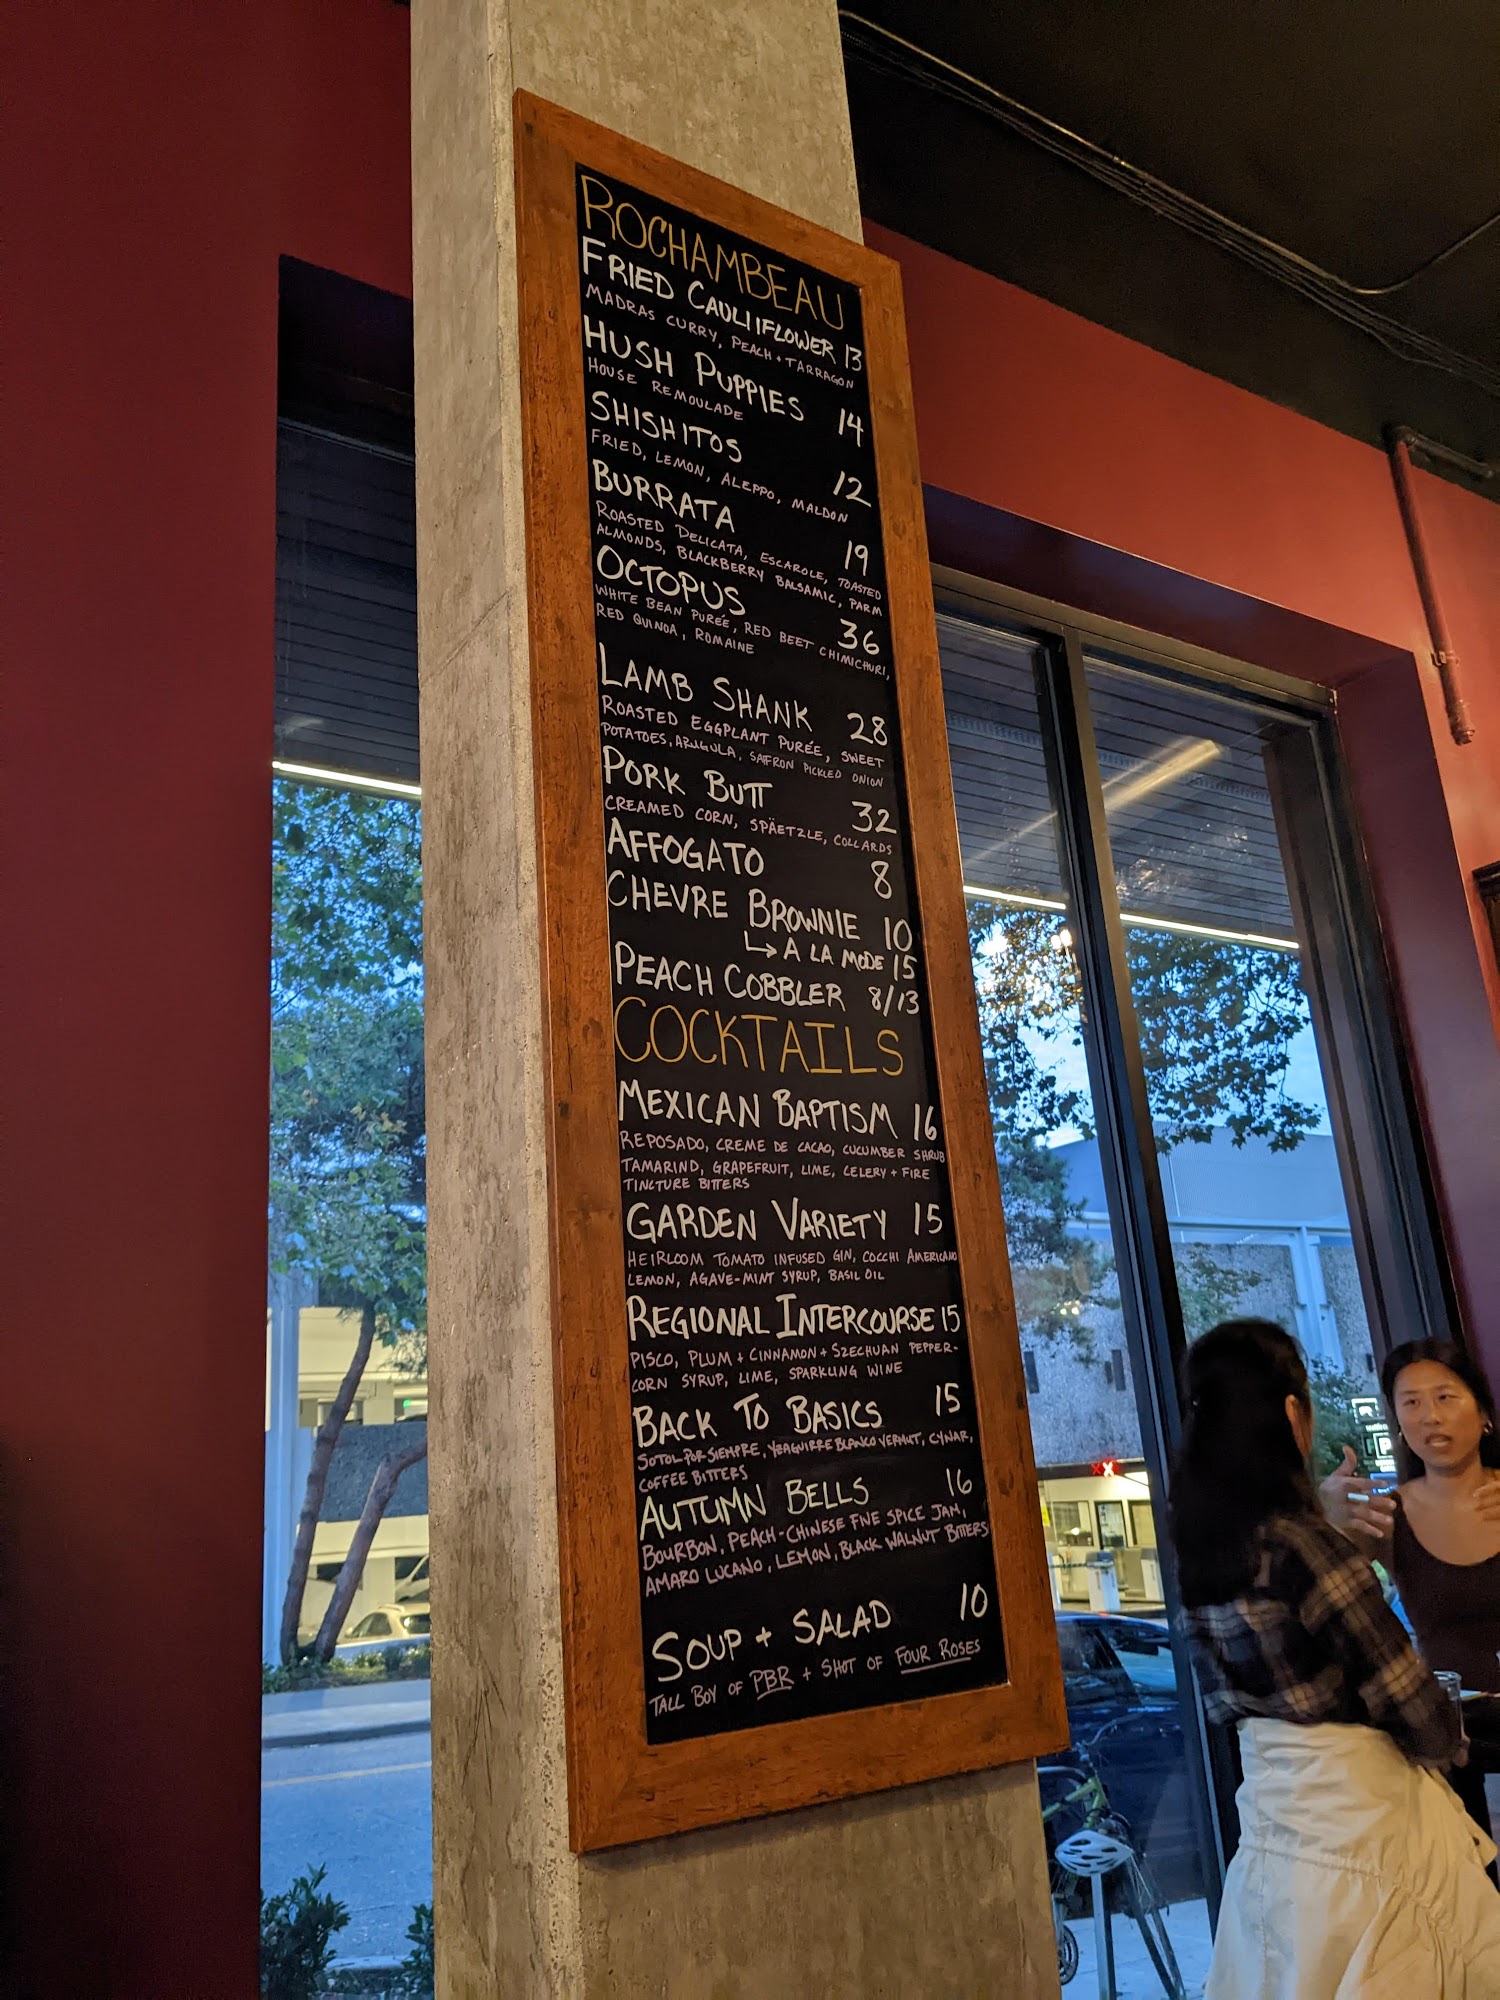 ROCHAMBEAU
FRIED CAULIIFLOWER 13
MADRAS CURRY, PEACH + TARRAGON
HUSH PUPPIES 14
HOUSE REMOULADE
SHISHITOS 12
FRIED, LEMON, ALEPPO, MALDON
BURRATA 19
ROASTED DELICATA, ESCAROLE, TOASTED
ALMONDS, BLACKBERRY BALSAMIC, PARM
OCTOPUS 36
WHITE BEAN PURÉE, RED BEET CHIMICHURI,
RED QUINOA, ROMAINE
LAMB SHANK 28
ROASTED EGGPLANT PURÉE, SWEET
POTATOES, ARUGULA, SAFFRON PICKLED ONION
PORK BUTT 32
CREAMED CORN, SPÄETZLE, COLLARDS
AFFOGATO 8
CHEVRE BROWNIE 10
↳ A LA MODE 15
PEACH COBBLER 8/13
COCKTAILS
MEXICAN BAPTISM 16
REPOSADO, CREME DE CACAO, CUCUMBER SHRUB
TAMARIND, GRAPEFRUIT, LIME, CELERY + FIRE
TINCTURE BITTERS
GARDEN VARIETY 15
HEIRLOOM TOMATO INFUSED GIN, COCCHI AMERICANO
LEMON, AGAVE-MINT SYRUP, BASIL OIL
REGIONAL INTERCOURSE 15
PISCO, PLUM + CINNAMON + SZECHUAN PEPPER-
CORN SYRUP, LIME, SPARKLING WINE
BACK TO BASICS 15
SOTOL POR SIEMPRE, YZAGUIRRE BLANCO VERMUT, CYNAR,
COFFEE BITTERS
AUTUMN BELLS 16
BOURBON, PEACH-CHINESE FIVE SPICE JAM,
AMARO LUCANO, LEMON, BLACK WALNUT BITTERS
SOUP + SALAD 10
TALL BOY OF PBR + SHOT OF FOUR ROSES